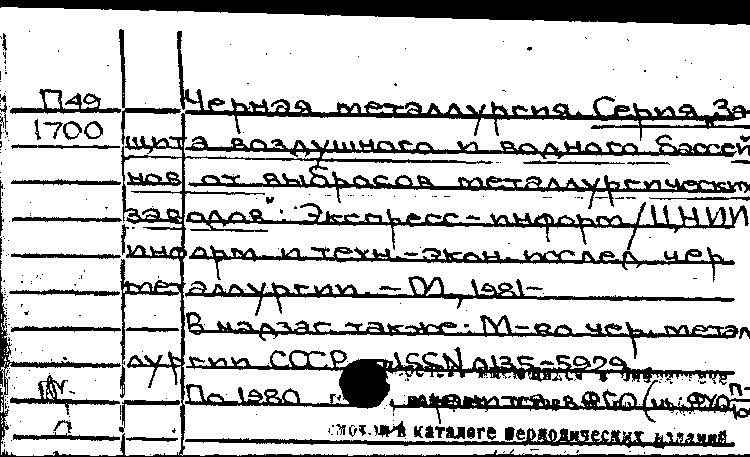 П49 Черная металлургия. Серия "За-
1700 щита воздушного и водного бассей
нов от выбросов металлургических
заводов": Экспресс-информ / ЦНИИ
информ. и техн.-экон. исслед. чер.
металлургии. - М, 1981-
В надзаг. также: М-во чер. метал
лургии СССР. - ISSN 0135-5929
имеющихся в библиотеке
По 1980
смотри в каталоге периодических изданий